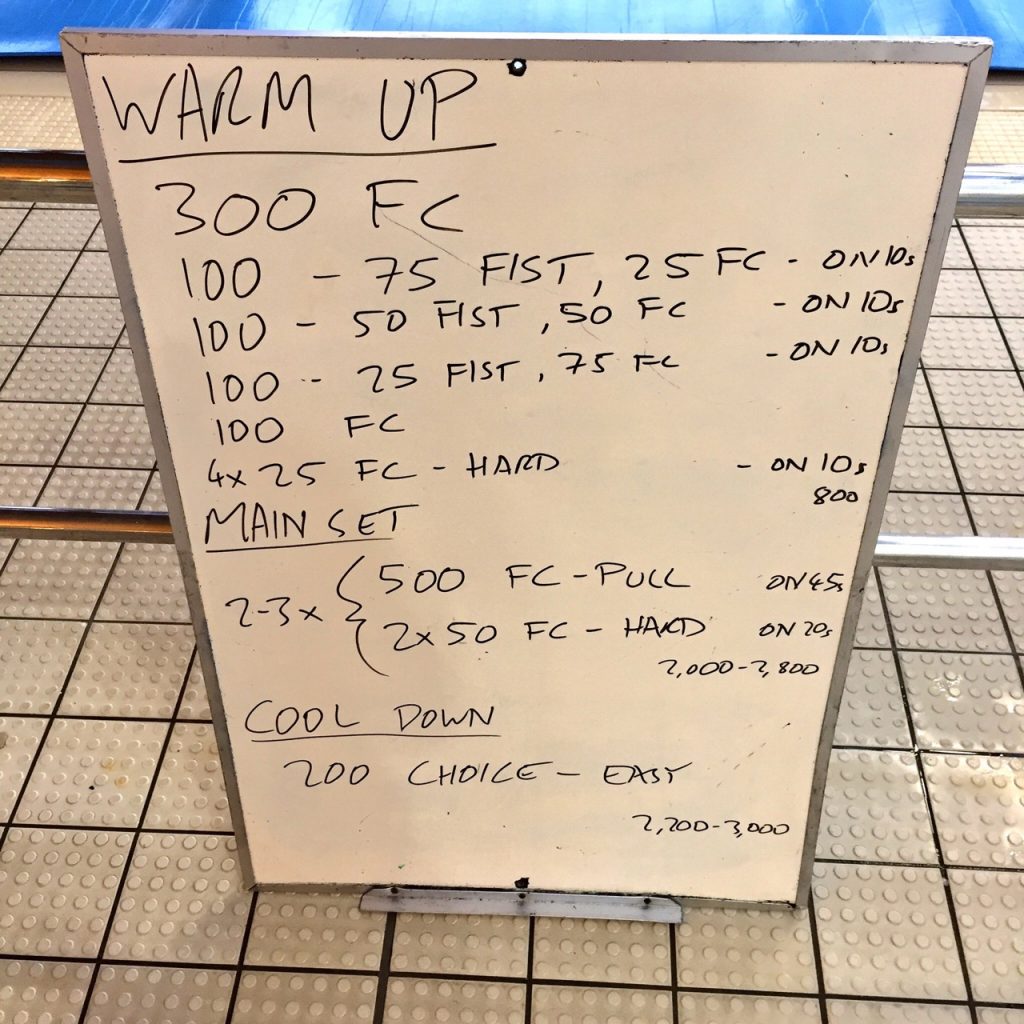 WARM UP
300 FC
100 - 75 FIST, 25 FC - ON 10s
100 - 50 FIST, 50 FC - ON 10s
100 - 25 FIST, 75 FC - ON 10s
100 FC
4x 25 FC - HARD - ON 10s
800
MAIN SET
2-3x { 500 FC - PULL ON 45s
2x50 FC - HARD ON 20s
2,000-2,800
COOL DOWN
200 CHOICE - EASY
2,200-3,000